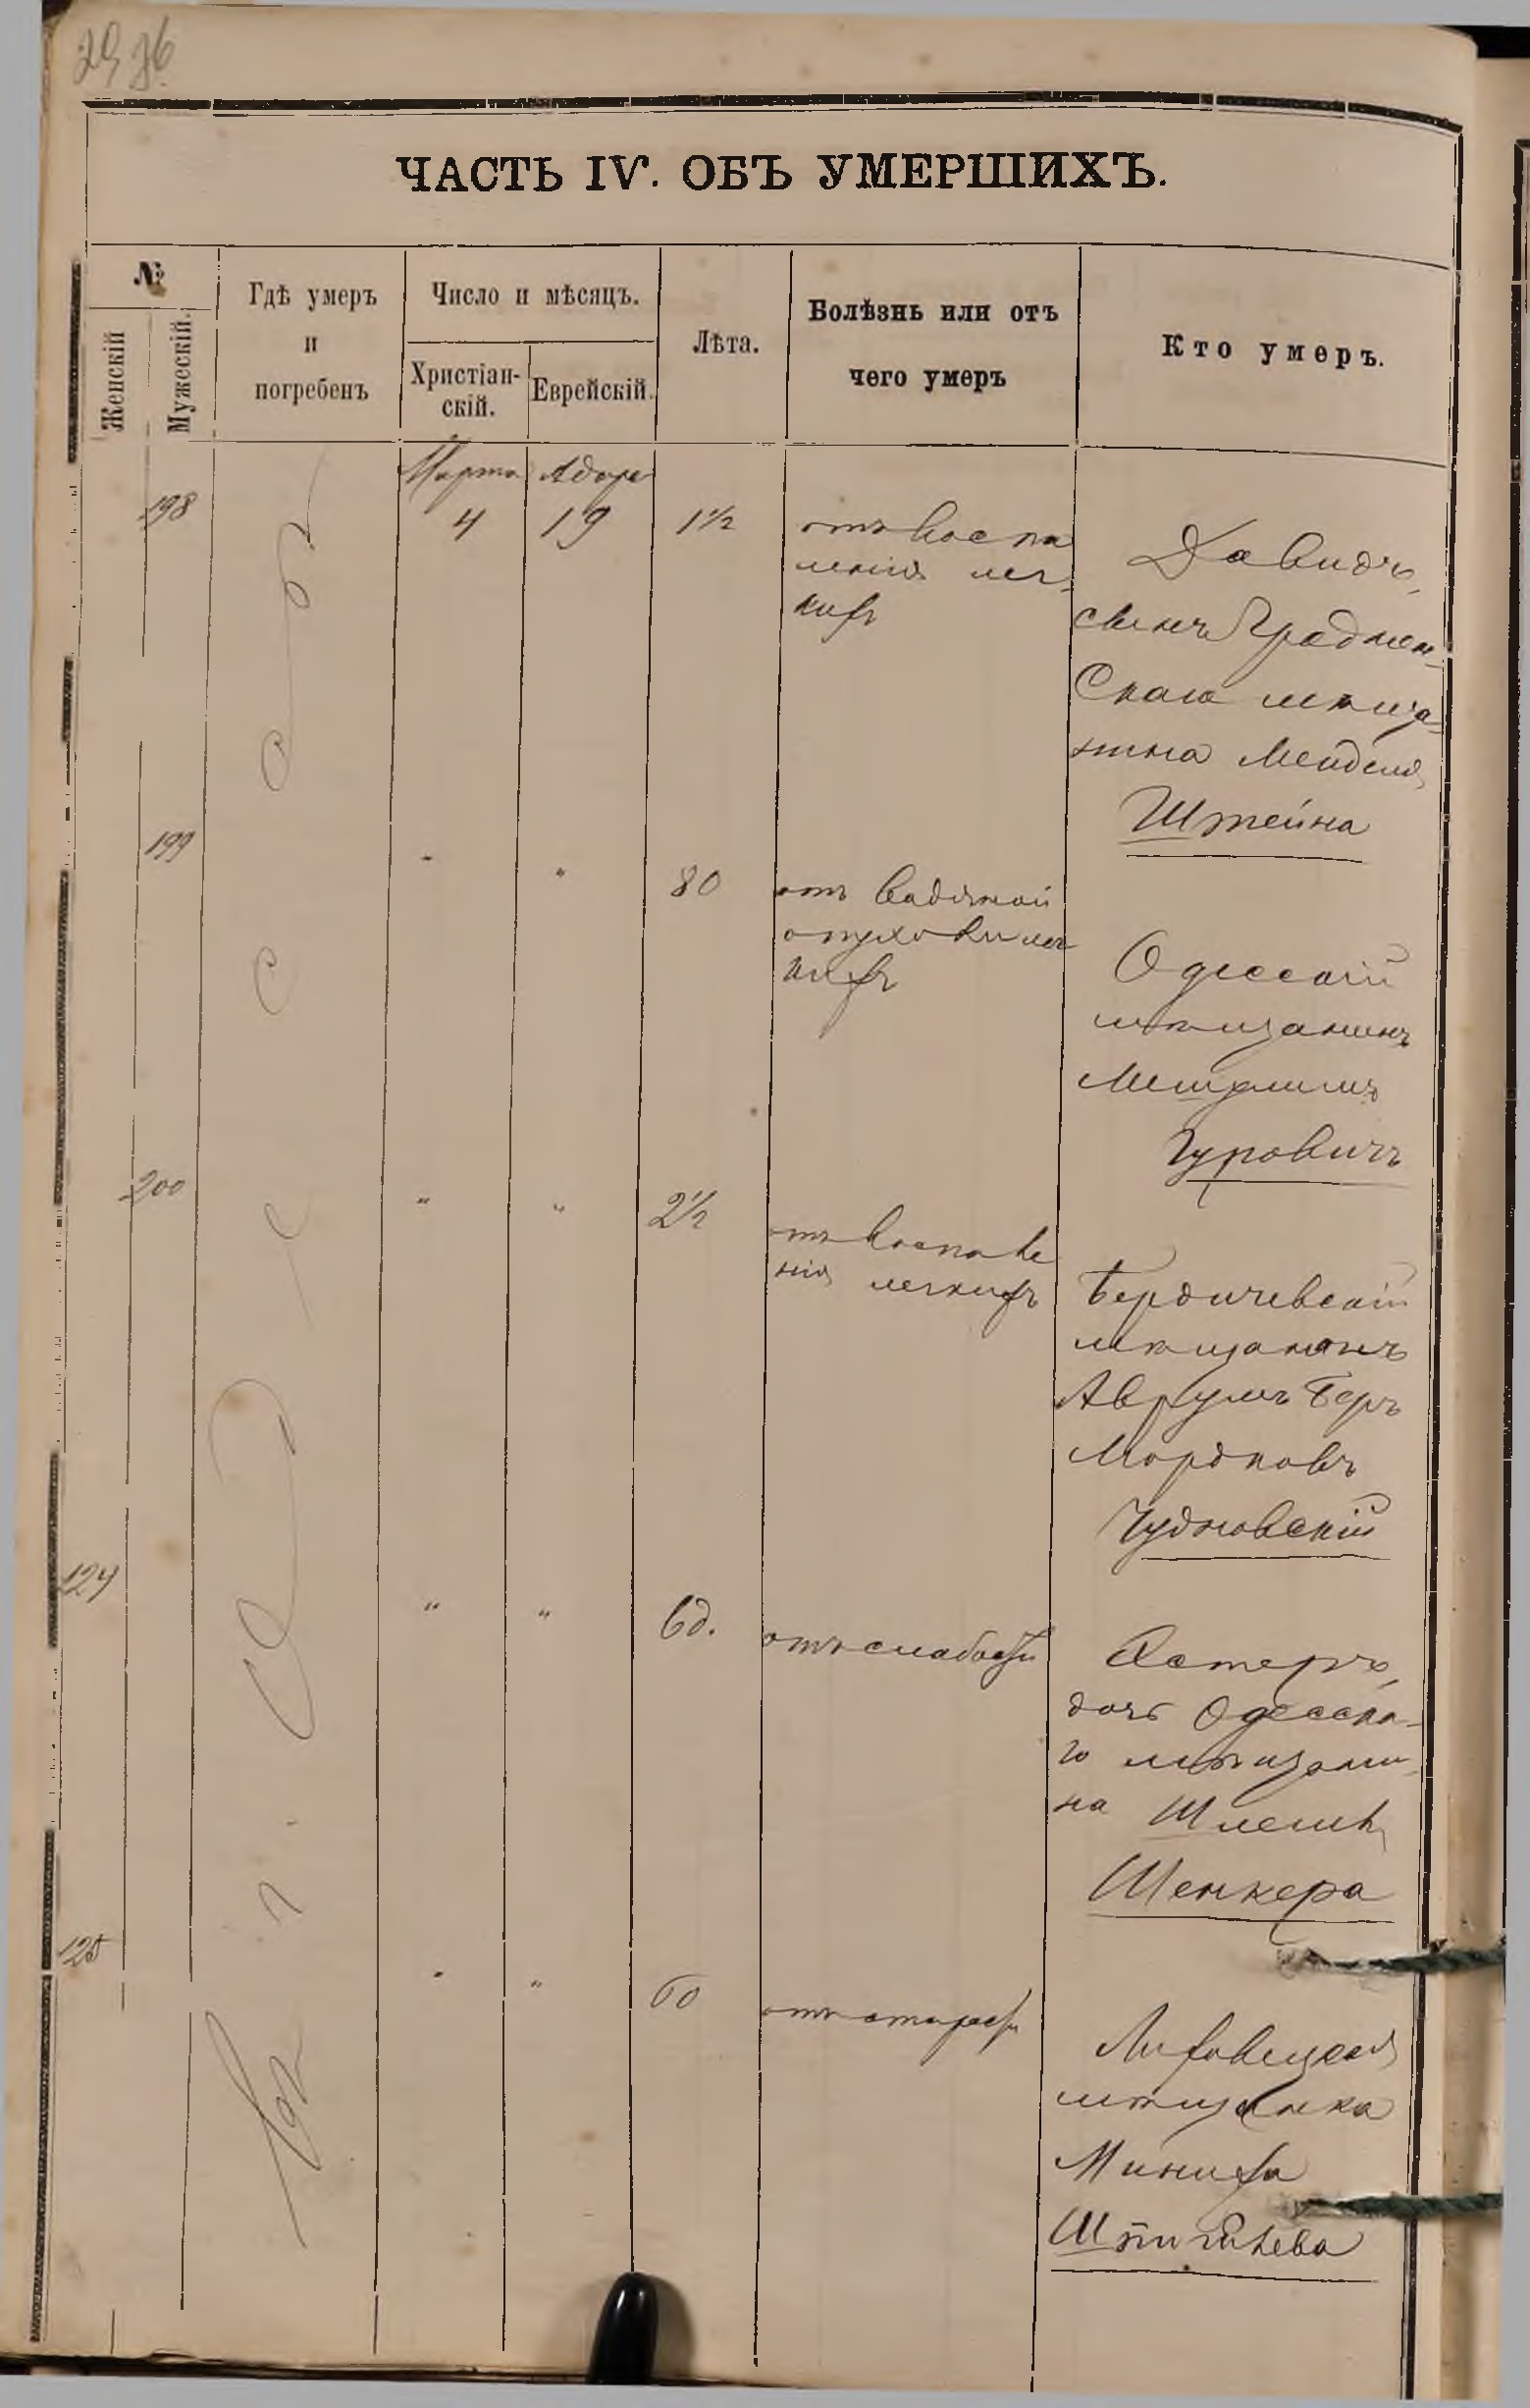 ЧАСТЬ IV. ОБЪ УМЕРШИХЪ.
№
Женскій
Мужескій.
Гдѣ умеръ
и
погребенъ
Число и мѣсяцъ.
Христіан-
скій.
Еврейскій.
Лѣта.
Болѣзнь или отъ
чего умеръ
Кто умеръ.
Въ г. Одессѣ
Марта Адара
198 4 19 1½
отъ воспа
ленія лег-
кихъ
Давидъ,
сынъ
скаго мѣща-
нина Менделя
Штейна
199 " " 80
отъ водяной
опухоли лег
кихъ
Одесскій
мѣщанинъ
Мешулимъ
Гуровичъ
200 " " 2½
отъ воспале
нія легкихъ
Бердичевскій
мѣщанинъ
Аврумъ Беръ
Мордковъ
Чудновскій
124 " " 6д.
отъ слабости
Эстеръ,
дочь Одесска-
го мѣщани-
на Шлемы
Шенкера
125 " " 60
отъ старости
мѣщанка